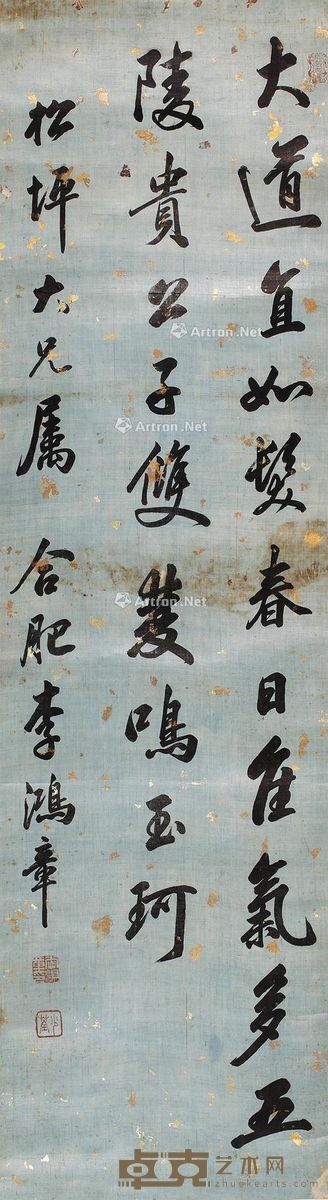 大道直如髮春日佳氣多五
陵貴公子雙雙鳴玉珂
松坪大兄属 合肥李鴻章
少荃
Artron.Net
Artron.Net
Artron.Net
Artron.Net
卓克艺术网
zhuokearts.com